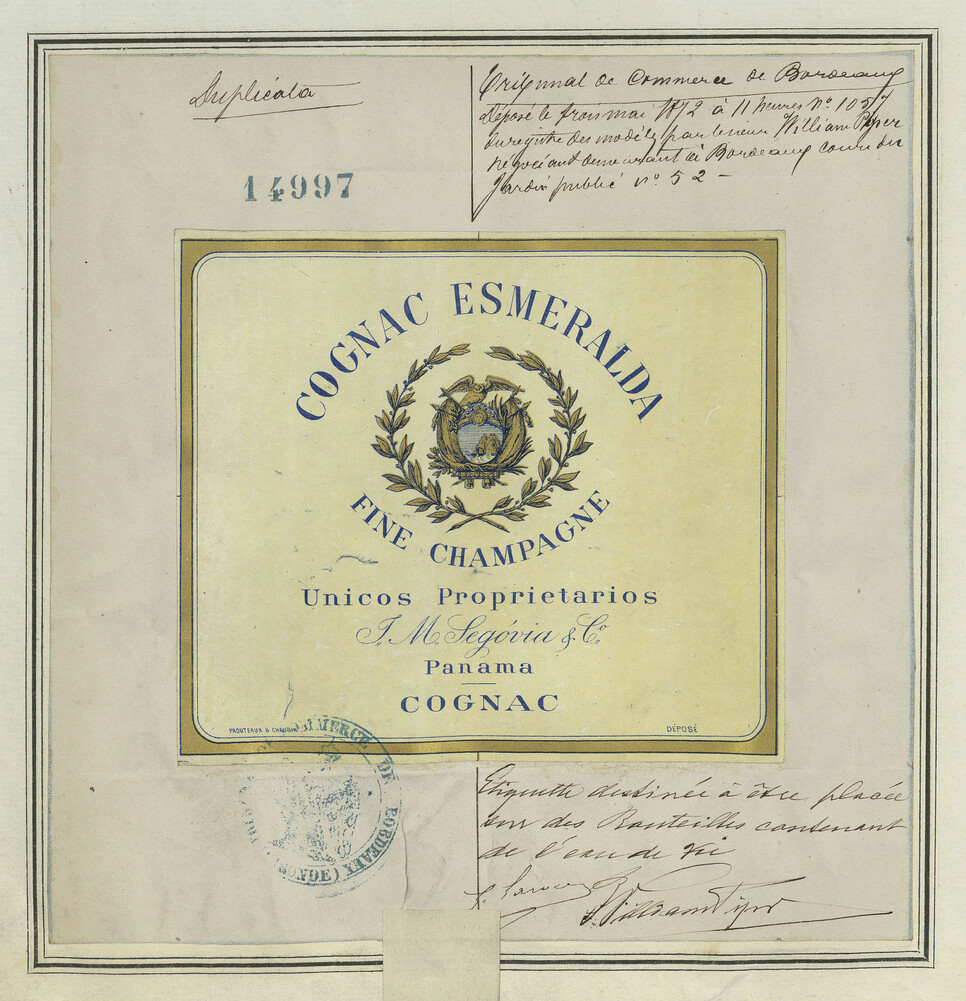 Duplicata
14997
Tribunal de Commerce de Bordeaux
Déposé le trois mai 1872 à 11 heures No 1057
du registre des modèles par le sieur William Piper
négociant demeurant à Bordeaux cours du
Jardin public no 52 -
COGNAC ESMERALDA
FINE CHAMPAGNE
Unicos Proprietarios
J. M. Segóvia & Co.
Panama
COGNAC
PROUTEAUX & CHAUBIN
DÉPOSÉ
COMMERCE DE BORDEAUX (GIRONDE)
Etiquette destinée à être placée
sur des Bouteilles contenant
de l'eau de vie
William Piper